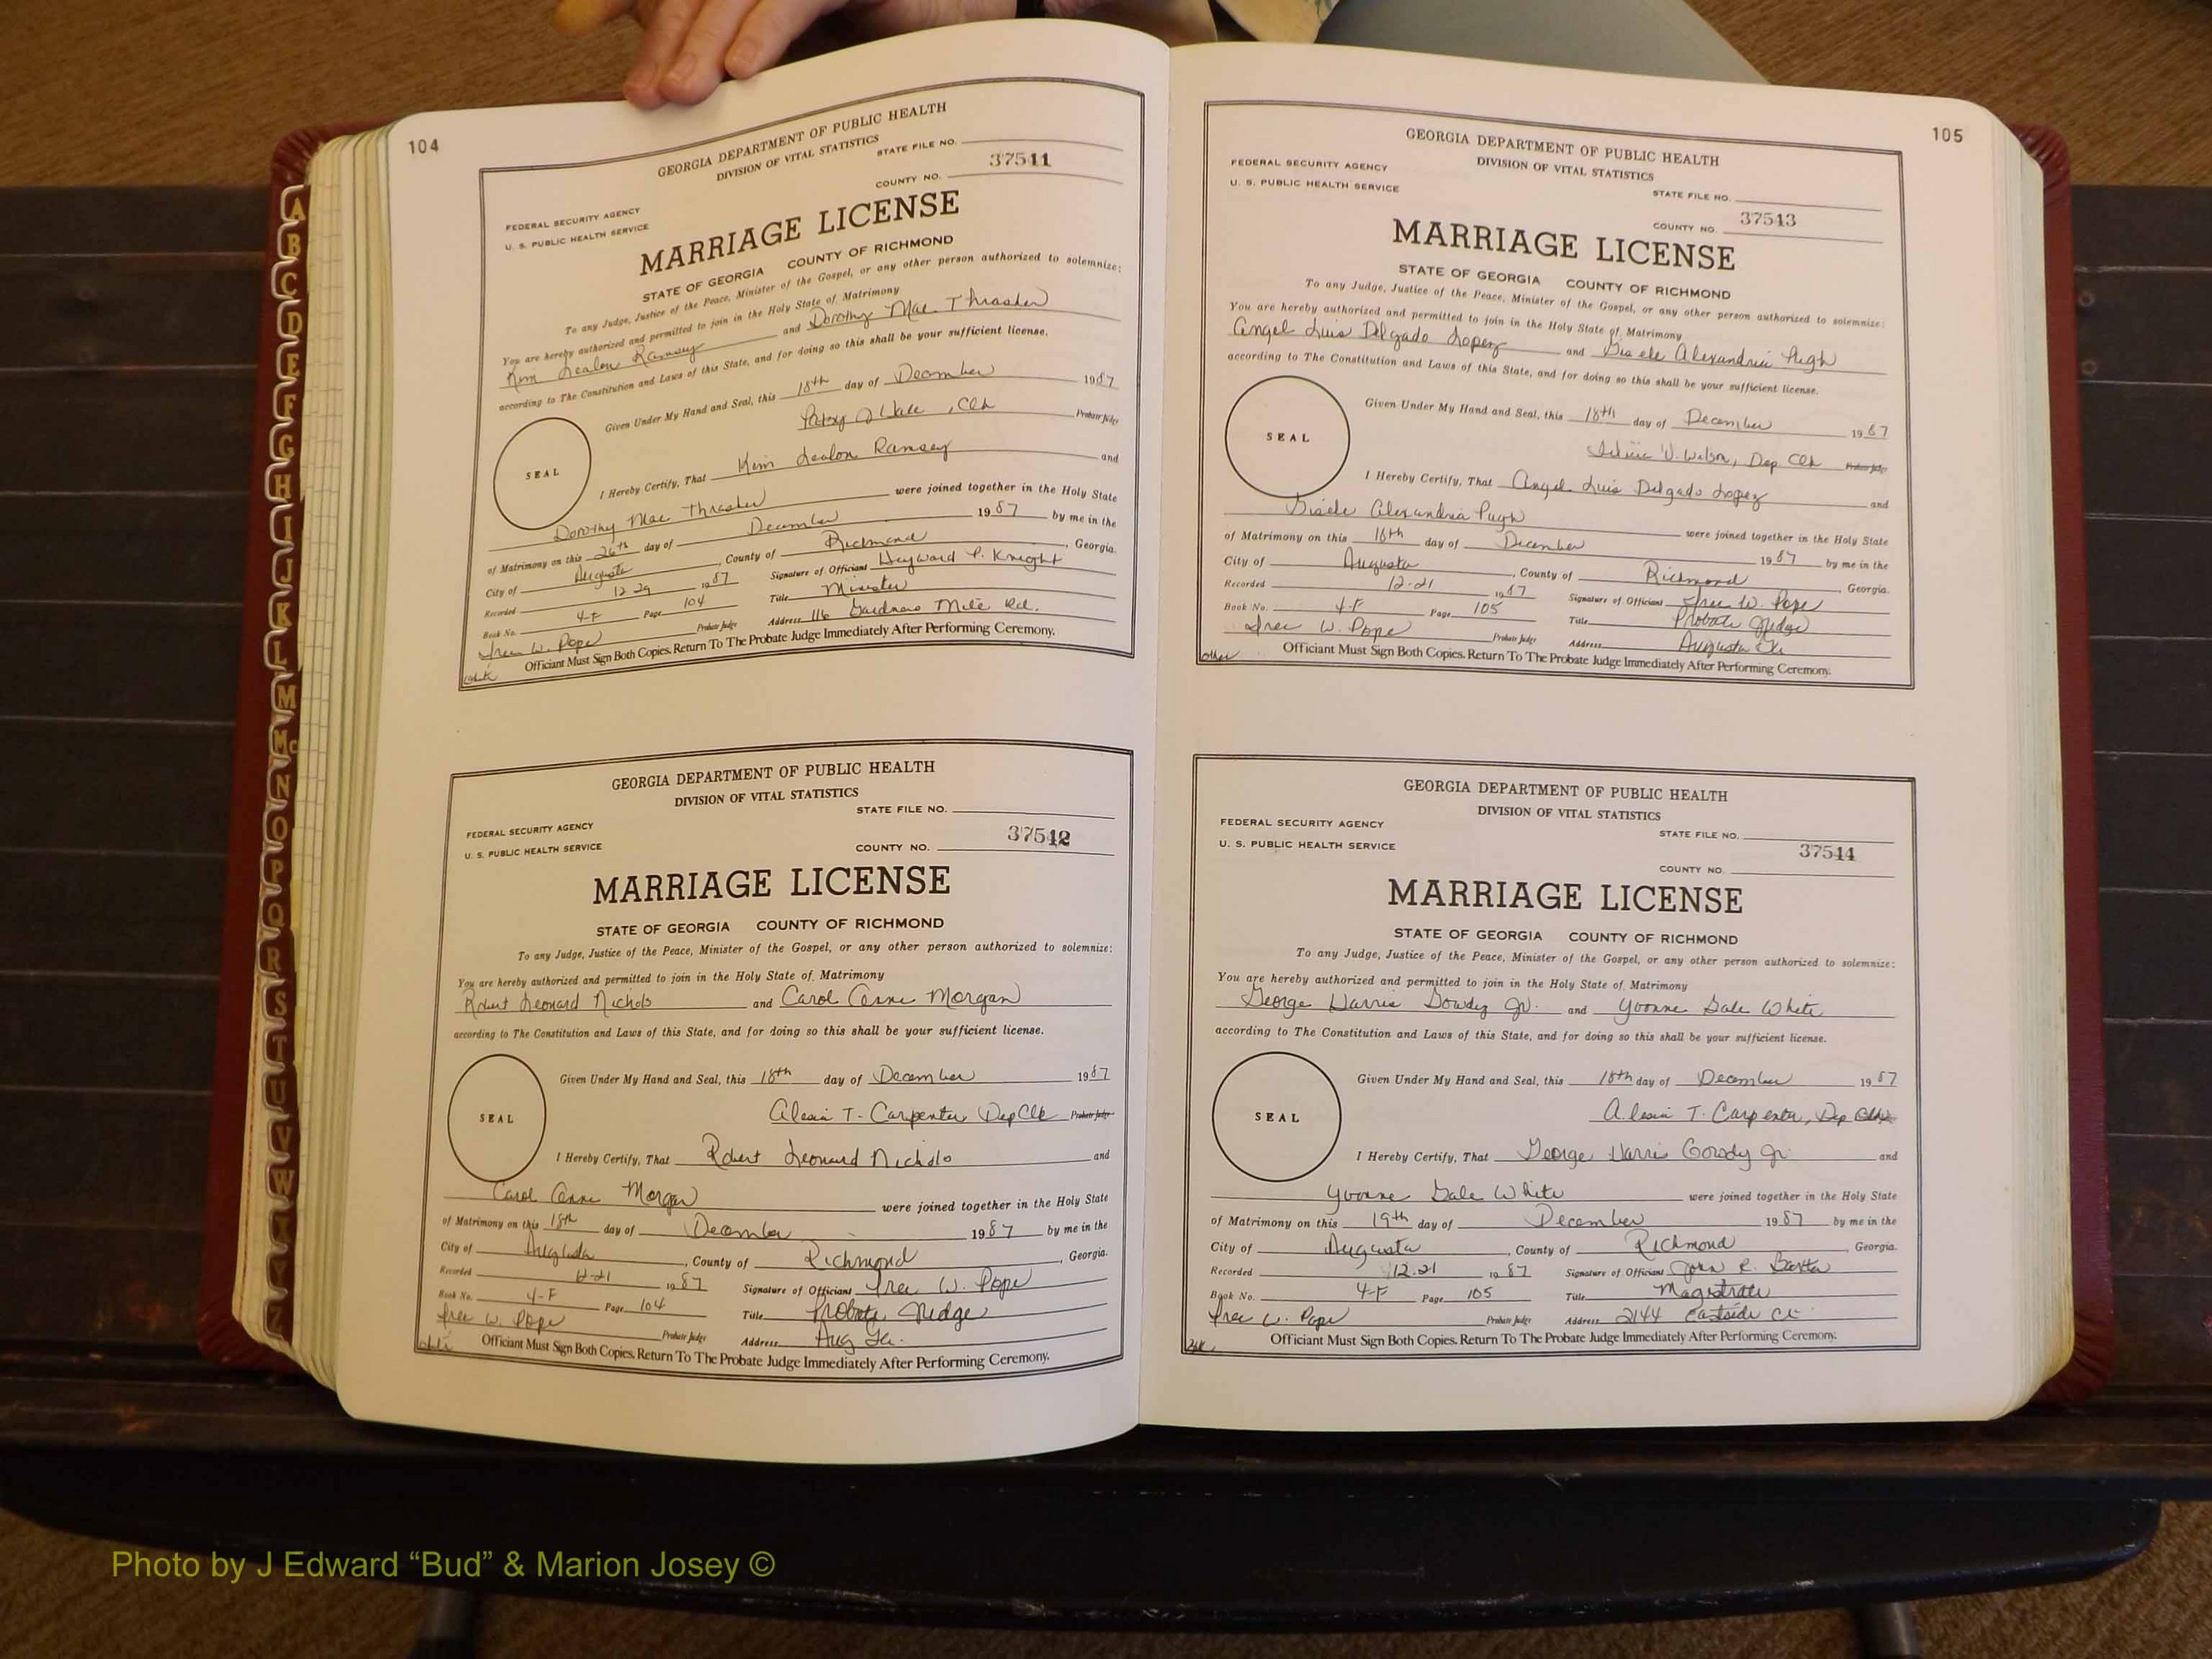 104
GEORGIA DEPARTMENT OF PUBLIC HEALTH
DIVISION OF VITAL STATISTICS
STATE FILE NO.
37511
COUNTY NO.
FEDERAL SECURITY AGENCY
U. S. PUBLIC HEALTH SERVICE
MARRIAGE LICENSE
STATE OF GEORGIA COUNTY OF RICHMOND
To any Judge, Justice of the Peace, Minister of the Gospel, or any other person authorized to solemnize:
You are hereby authorized and permitted to join in the Holy State of Matrimony
Kim Lealon Ramsey and Dorothy Mae Thrasher
according to The Constitution and Laws of this State, and for doing so this shall be your sufficient license.
Given Under My Hand and Seal, this 18th day of December 1987
Clk Probate Judge
SEAL
I Hereby Certify, That Kim Lealon Ramsey and
Dorothy Mae Thrasher were joined together in the Holy State
of Matrimony on this 26th day of December 1987 by me in the
City of Augusta, County of Richmond, Georgia.
Recorded 12 29 1987 Signature of Officiant Heyward P. Knight
Book No. 4-F Page 104 Title Minister
W. Pope Probate Judge Address 116 Gardners Mill Rd.
Officiant Must Sign Both Copies. Return To The Probate Judge Immediately After Performing Ceremony.
GEORGIA DEPARTMENT OF PUBLIC HEALTH
DIVISION OF VITAL STATISTICS
STATE FILE NO.
FEDERAL SECURITY AGENCY
37512
U. S. PUBLIC HEALTH SERVICE
COUNTY NO.
MARRIAGE LICENSE
STATE OF GEORGIA COUNTY OF RICHMOND
To any Judge, Justice of the Peace, Minister of the Gospel, or any other person authorized to solemnize:
You are hereby authorized and permitted to join in the Holy State of Matrimony
Robert Leonard Nichols and Carol Anne Morgan
according to The Constitution and Laws of this State, and for doing so this shall be your sufficient license.
Given Under My Hand and Seal, this 18th day of December 1987
Alesia T. Carpenter Dep Clk Probate Judge
SEAL
I Hereby Certify, That Robert Leonard Nichols and
Carol Anne Morgan were joined together in the Holy State
of Matrimony on this 18th day of December 1987 by me in the
City of Augusta, County of Richmond, Georgia.
Recorded 12-21 1987 Signature of Officiant W. Pope
Book No. 4-F Page 104 Title Probate Judge
W. Pope Probate Judge Address Aug Ga.
Officiant Must Sign Both Copies. Return To The Probate Judge Immediately After Performing Ceremony.
105
GEORGIA DEPARTMENT OF PUBLIC HEALTH
DIVISION OF VITAL STATISTICS
FEDERAL SECURITY AGENCY
U. S. PUBLIC HEALTH SERVICE
STATE FILE NO.
37513
COUNTY NO.
MARRIAGE LICENSE
STATE OF GEORGIA COUNTY OF RICHMOND
To any Judge, Justice of the Peace, Minister of the Gospel, or any other person authorized to solemnize:
You are hereby authorized and permitted to join in the Holy State of Matrimony
Angel Luis Delgado Lopez and Gisele Alexandria Pugh
according to The Constitution and Laws of this State, and for doing so this shall be your sufficient license.
Given Under My Hand and Seal, this 18th day of December 1987
V. Watson, Dep. Clk Probate Judge
SEAL
I Hereby Certify, That Angel Luis Delgado Lopez and
Gisele Alexandria Pugh were joined together in the Holy State
of Matrimony on this 18th day of December 1987 by me in the
City of Augusta, County of Richmond, Georgia.
Recorded 12-21 1987 Signature of Officiant W. Pope
Book No. 4-F Page 105 Title Probate Judge
W. Pope Probate Judge Address Augusta Ga
other Officiant Must Sign Both Copies. Return To The Probate Judge Immediately After Performing Ceremony.
GEORGIA DEPARTMENT OF PUBLIC HEALTH
DIVISION OF VITAL STATISTICS
FEDERAL SECURITY AGENCY
STATE FILE NO.
U. S. PUBLIC HEALTH SERVICE
37514
COUNTY NO.
MARRIAGE LICENSE
STATE OF GEORGIA COUNTY OF RICHMOND
To any Judge, Justice of the Peace, Minister of the Gospel, or any other person authorized to solemnize:
You are hereby authorized and permitted to join in the Holy State of Matrimony
George Harris Gowdy Jr. and Yvonne Gale White
according to The Constitution and Laws of this State, and for doing so this shall be your sufficient license.
Given Under My Hand and Seal, this 18th day of December 1987
Alesia T. Carpenter, Dep Clk
SEAL
I Hereby Certify, That George Harris Gowdy Jr. and
Yvonne Gale White were joined together in the Holy State
of Matrimony on this 19th day of December 1987 by me in the
City of Augusta, County of Richmond, Georgia.
Recorded 12-21 1987 Signature of Officiant John R.
Book No. 4-F Page 105 Title Magistrate
W. Pope Probate Judge Address 2144 Eastside Ct.
Officiant Must Sign Both Copies. Return To The Probate Judge Immediately After Performing Ceremony.
A
B
C
D
E
F
G
H
I
J
K
L
M
Mc
N
O
P
Q
R
S
T
U
V
W
Y
Z
Photo by J Edward “Bud” & Marion Josey ©